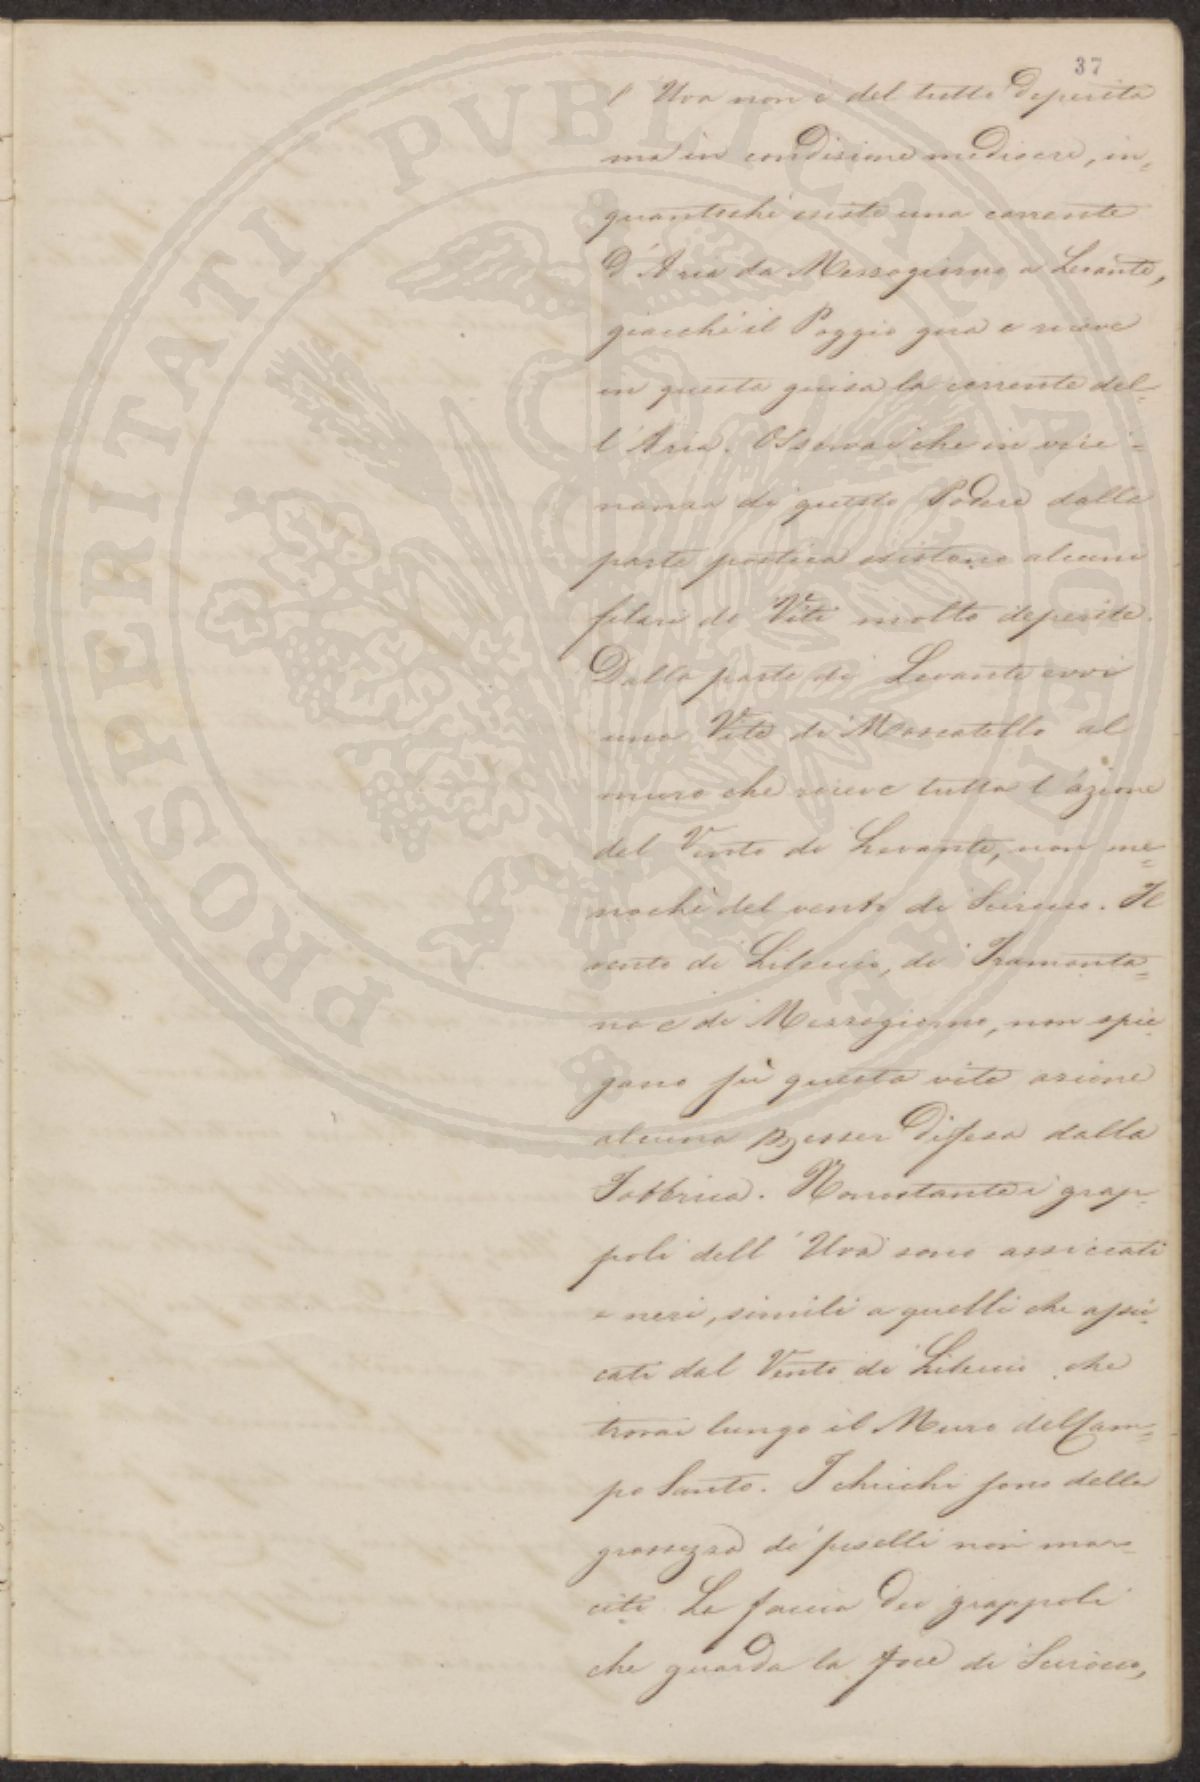 37
l'Uva non è del tutto deperita
ma in condizione mediocre, in=
quantochè esiste una corrente
d'Aria da Mezzogiorno a Levante,
giacchè il Poggio gira e riceve
in questa guisa la corrente del=
l'Aria. Osservai che in vici=
nanza di questo Podere dalla
parte postica esistono alcuni
filari di Viti molto deperite.
Dalla parte di Levante evvi
una Vite di Moscatello al
muro che riceve tutta l'azione
del Vento di Levante, non me=
nochè del vento di Scirocco. Il
vento di Libeccio, di Tramonta=
na e di Mezzogiorno, non spie=
gano sù questa vite azione
alcuna p esser difesa dalla
Fabbrica. Nonostante i grap=
poli dell'Uva sono assiccati
e neri, simili a quelli che
cati dal Vento di Libeccio che
trovai lungo il Muro del Cam=
po Santo. I chicchi sono della
grossezza di piselli non mar=
citi. La faccia dei grappoli
che guarda la foce di Scirocco,
PROSPERITATI PVBLICAE AVGENDAE